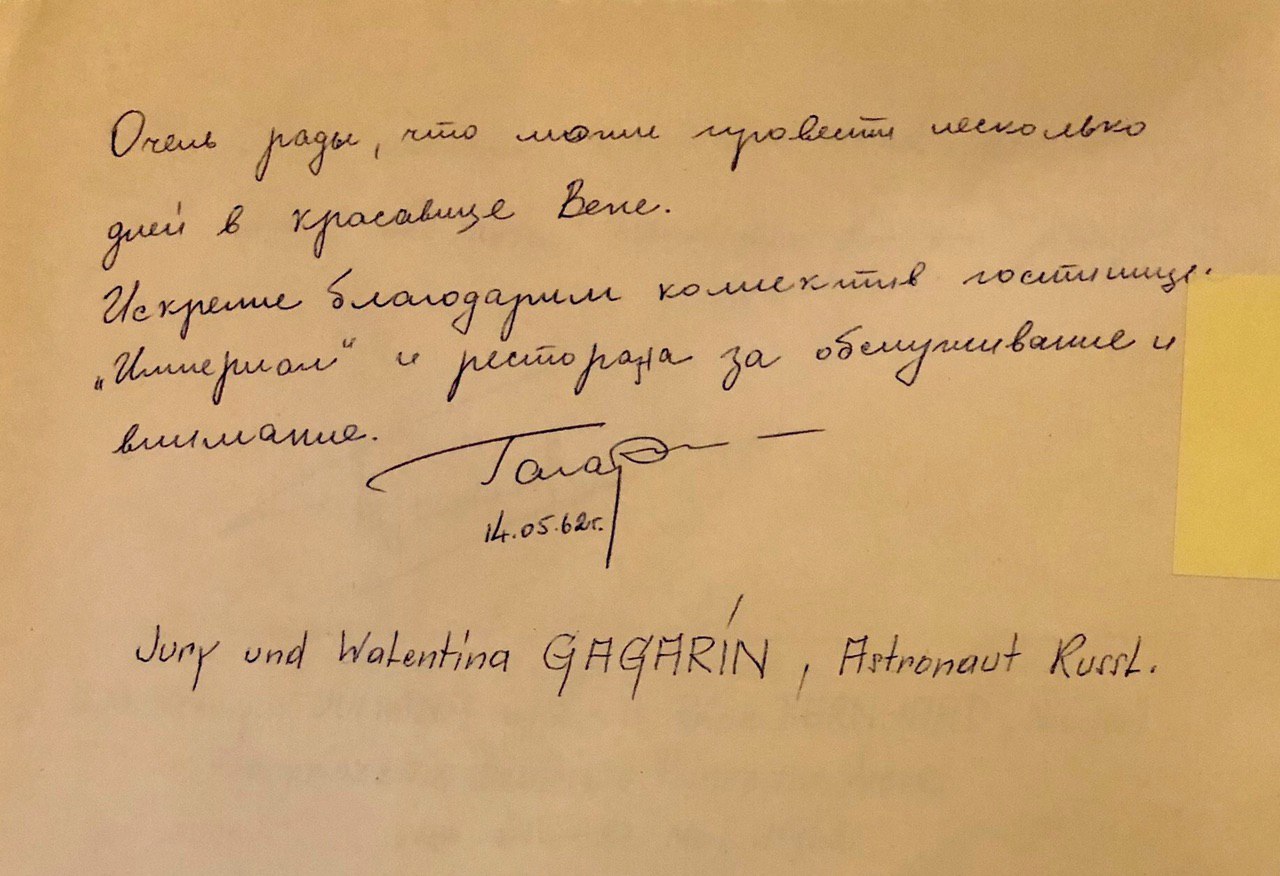 Очень рады, что могли провести несколько
дней в красавице Вене.
Искренне благодарим коллектив гостиницы
„Империал“ и ресторана за обслуживание и
внимание.
Гагар
14.05.62г.
Jury und Walentina GAGARIN, Astronaut Russl.